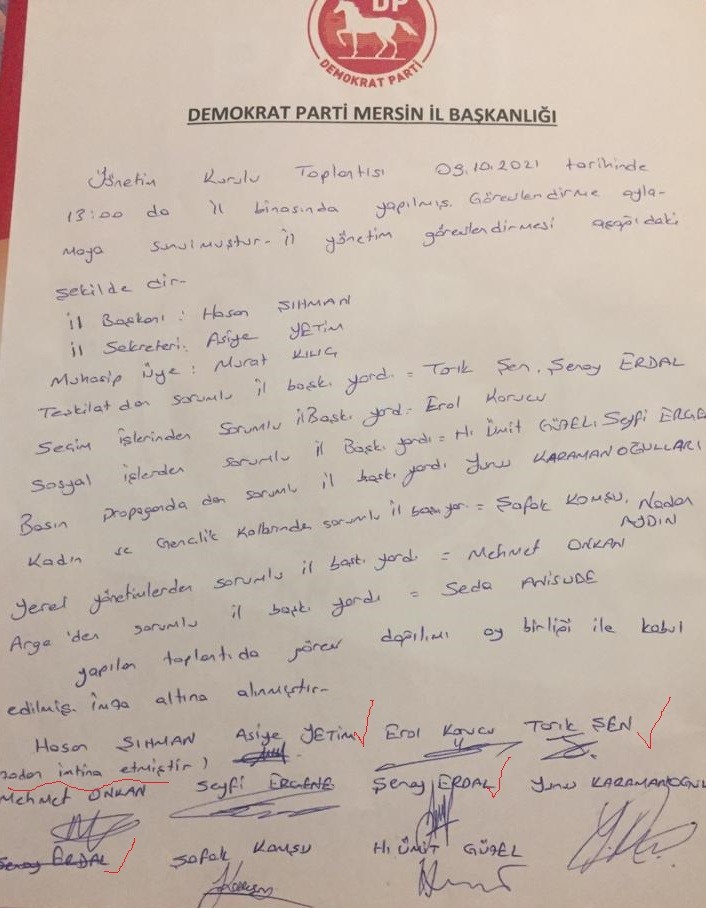 DP
DEMOKRAT PARTİ
DEMOKRAT PARTİ MERSİN İL BAŞKANLIĞI
Yönetim Kurulu Toplantısı 09.10.2021 tarihinde
13:00 da İl binasında yapılmış. Görevlendirme oyla-
maya sunulmuştur. İl yönetim görevlendirmesi aşağıdaki
şekilde dir.
İl Başkanı: Hasan ŞIHMAN
İl Sekreteri: Asiye YETİM
Muhasip Üye: Murat KILIÇ
Teşkilatdan sorumlu il başk. yard. = Tarık Şen, Şeray ERDAL
Seçim İşlerinden Sorumlu il Başk. yard. = Erol Korucu
Sosyal işlerden sorumlu il Başk. yardı = H. Ümit GÜZEL, Seyfi ERGE
Basın Propaganda dan sorumlu il başk. yardı Yunus KARAMANOĞULLARI
Kadın ve Gençlik Kollarından sorumlu il başk. yar. = Şafak KOMŞU, Nadan
AYDIN
Yerel yönetimlerden sorumlu il başk. yardı = Mehmet ONKAN
Arge'den sorumlu il başk. yardı = Seda
yapılan toplantıda görev dağılımı oy birliği ile kabul
edilmiş. İmza altına alınmıştır.
Hasan ŞIHMAN Asiye YETİM Erol Korucu Tarık ŞEN
zadan imtina etmiştir)
Mehmet ONKAN Seyfi ERGENE Şeray ERDAL Yunus KARAMANOĞUL
Şeray ERDAL Şafak KOMŞU H. ÜMİT GÜZEL